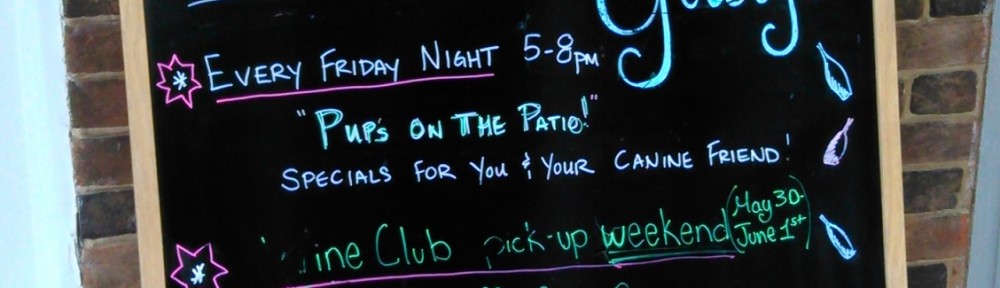 * EVERY FRIDAY NIGHT 5-8pm
"PUP'S ON THE PATIO!"
SPECIALS FOR YOU & YOUR CANINE FRIEND!
* Club pick-up weekend (May 30-
June 1st)